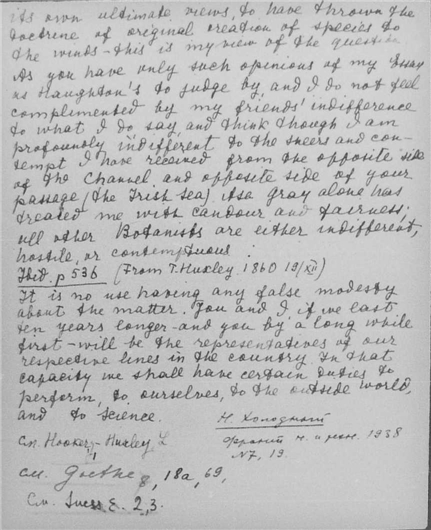 its own ultimate views, to have thrown the
doctrine of original creation of species to
the winds – this is my view of the question
As you have only such opinions of my Essay
as Haughton's to judge by, and I do not feel
complimented by my friends' indifference
to what I do say, and think though I am
profoundly indifferent to the sneers and con-
tempt I have received from the opposite side
of the Channel. and opposite side of your
passage (the Irish sea). Asa Gray alone has
treated me with candour and fairness;
all other Botanists are either indifferent,
hostile, or contemptuous
Ibid. p 536 (From T. Huxley 1860 19/XII)
It is no use having any false modesty
about the matter. You and I, if we last
ten years longer – and you by a long while
first – will be the representatives of our
respective lines in the country In that
capacity we shall have certain duties to
perform, to ourselves, to the outside world,
and to science.
Н. Холодный
Фронт н. и тех. 1938
N7, 19.
см. Hooker – Huxley L
см. Goethe 8, 18a, 69,
См. Suess E. 2, 3.